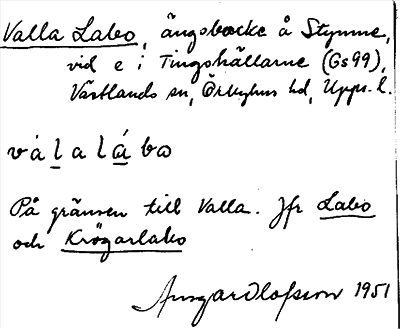 Valla Labo, ängsbacke å Stymne,
vid e i Tingshällarne (Gs99),
Västlands sn, Örbyhus hd, Upps. l.
vá l a l á bo
På gränsen till Valla. Jfr Labo
och Krögarlabo
Ansgar Olofsson 1951